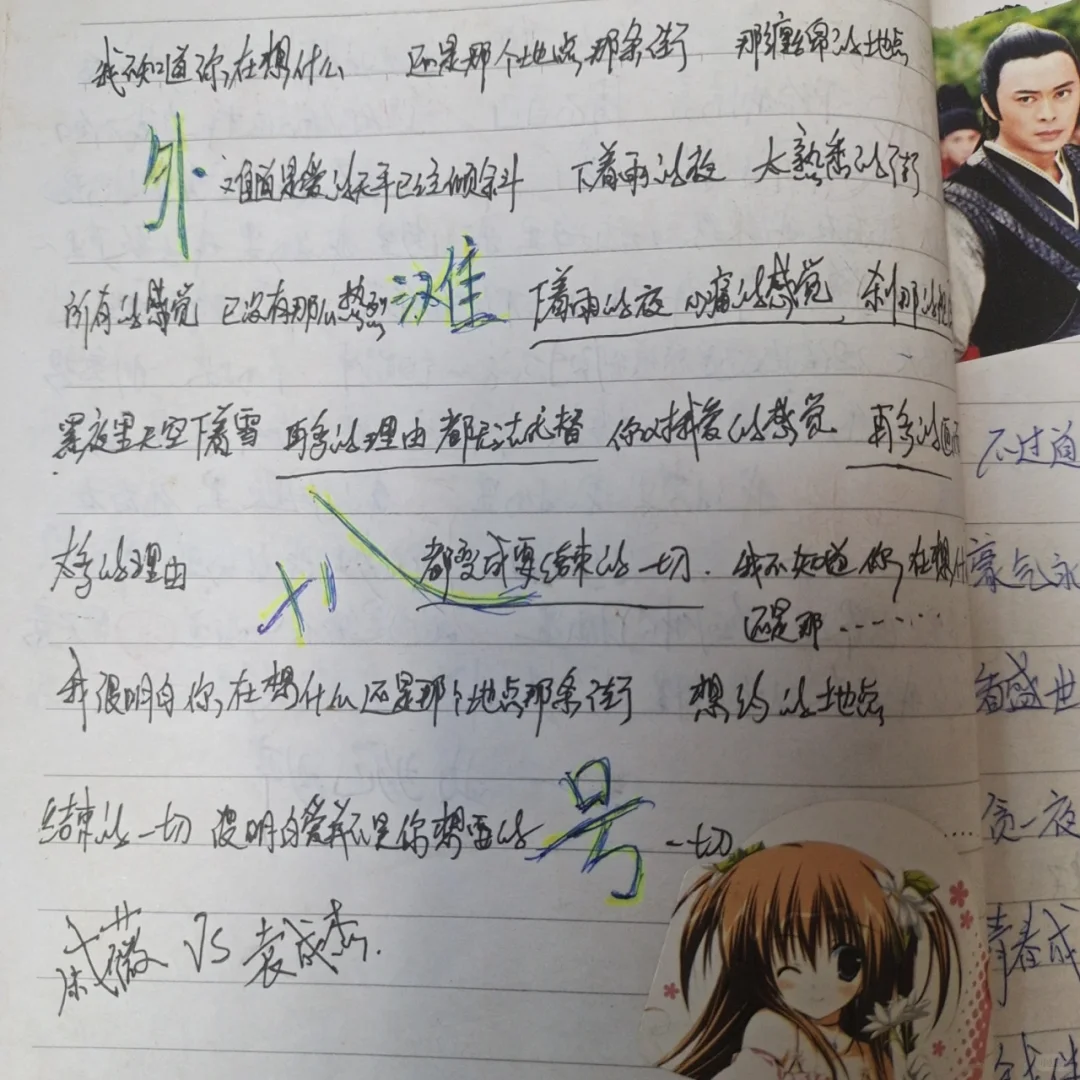 我不知道你在想什么 还是那个地点那条街 那缠绵的地点
外 难道是爱的天平已经倾斜 下着雨的夜 太熟悉的街
所有的感觉 已没有那么热烈 滩 下着雨的夜 心痛的感觉 刹那的
黑夜里天空下着雪 再多的理由 都无法代替 你以挥爱的感觉 再多的
太多的理由 都变成要结束的一切. 我不知道你在想什
还是那......
我很明白你在想什么还是那个地点那条街 想约的地点
结束的一切 没明白爱并不是你想要的 号 一切
VS 袁成杰.
不过道
豪气永
看盛世
负一夜
青春成